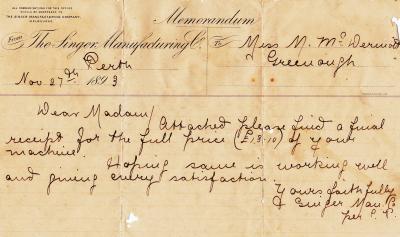 ALL COMMUNICATIONS FOR THIS OFFICE
SHOULD BE ADDRESSED TO
THE SINGER MANUFACTURING COMPANY,
MELBOURNE.
Memorandum
From The Singer Manufacturing Co. To Miss M. Mc Derwood
Perth Greenough
Nov 27th 1893
Dear Madam/ Attached please find a final
receipt for the full price of your
machine.
Hoping same is working well
and giving every satisfaction.
Yours faithfully
Singer Man. Co
per